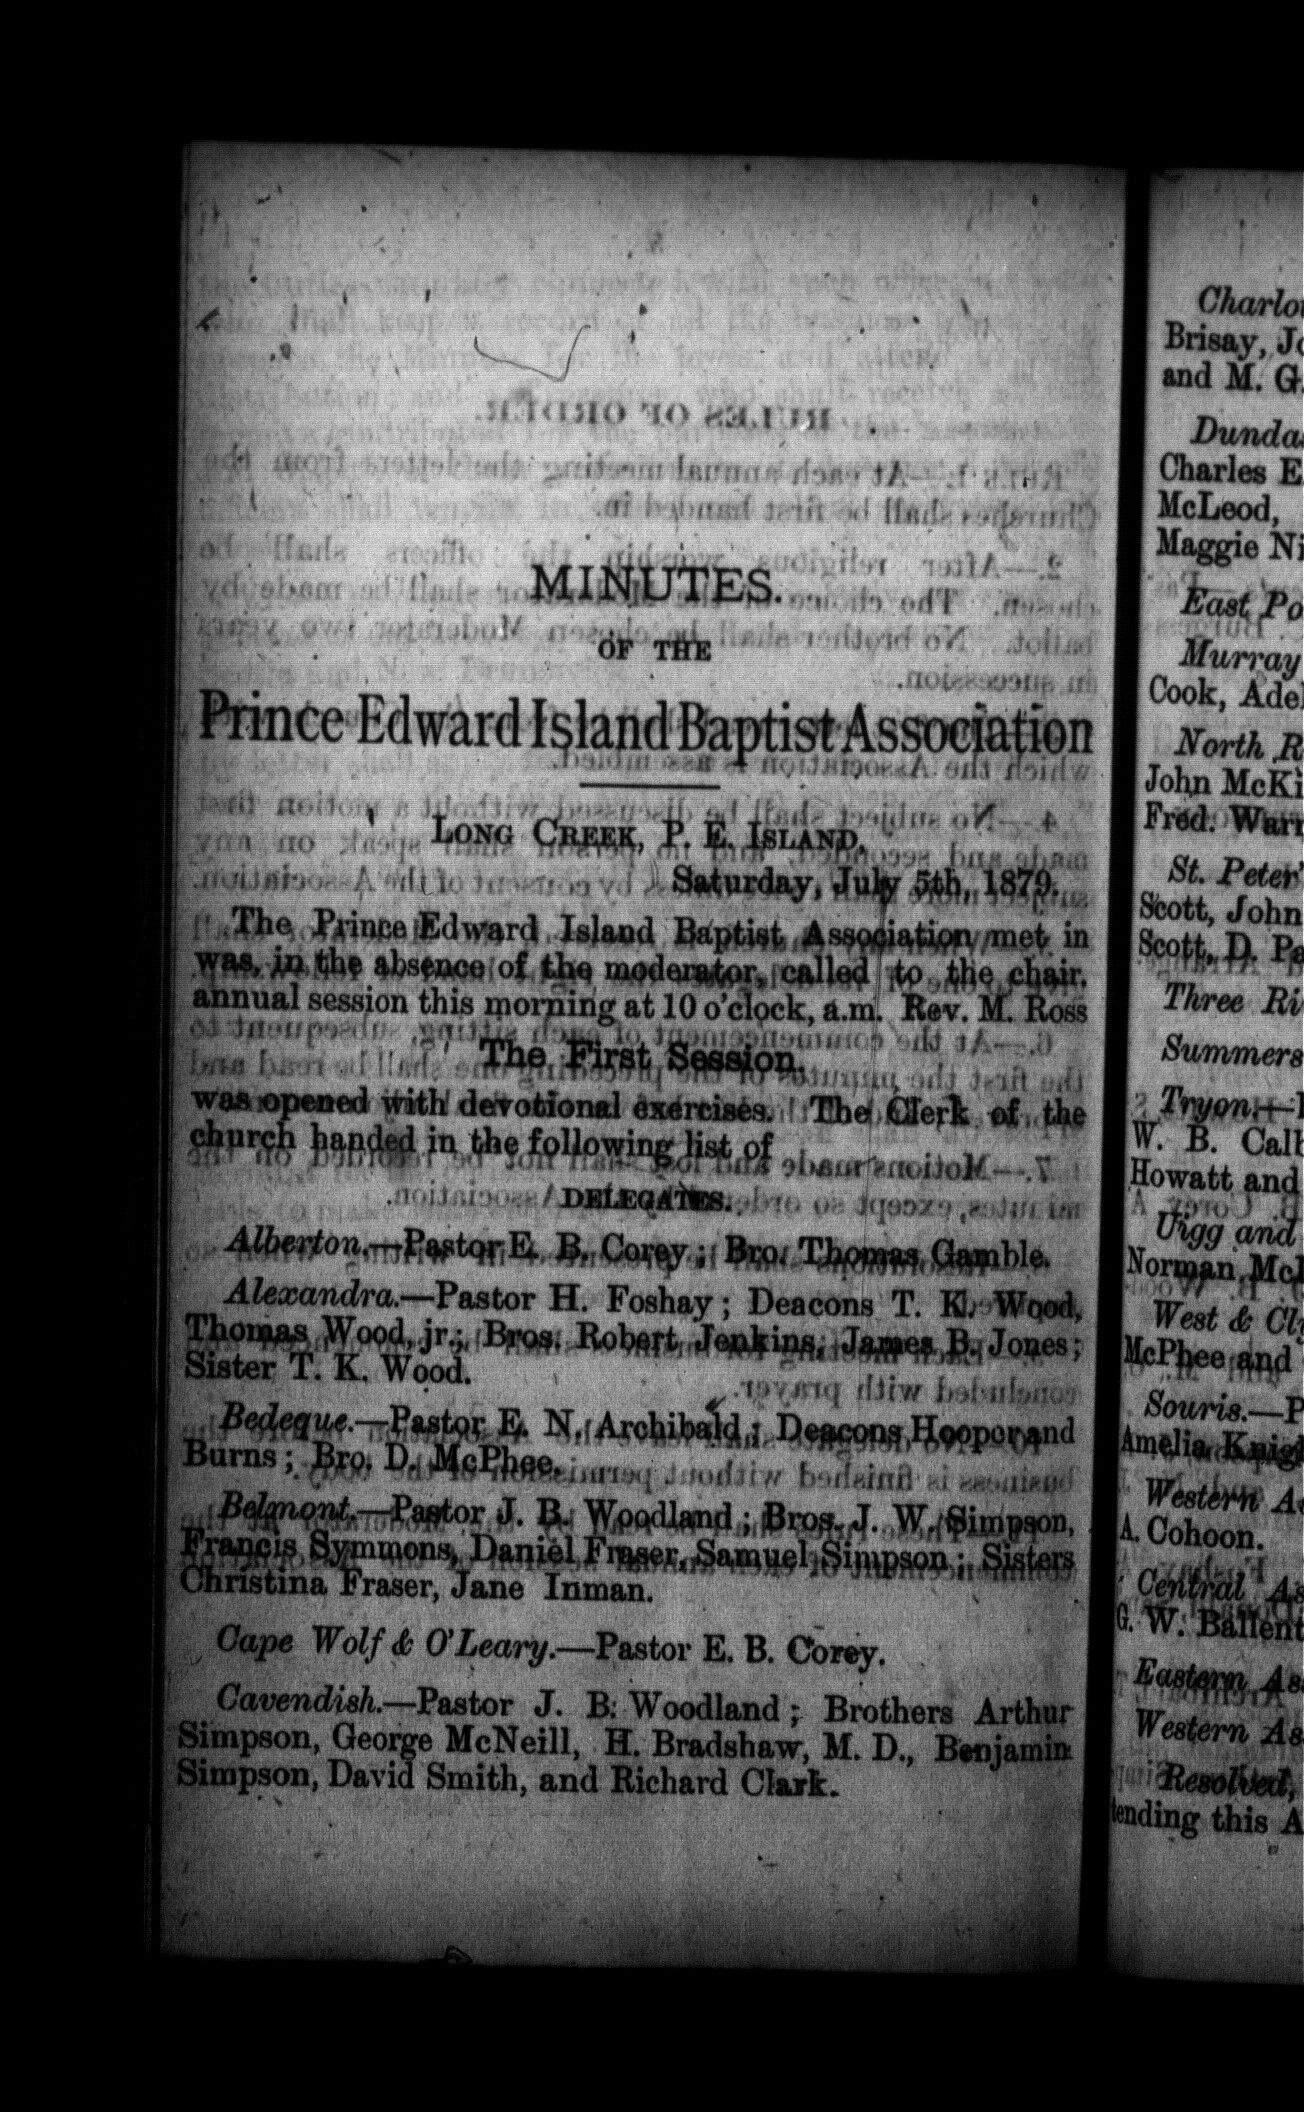 MINUTES.
OF THE
Prince Edward Island Baptist Association
LONG CREEK, P. E. ISLAND,
Saturday, July 5th, 1879.
The Prince Edward Island Baptist Association met in
was, in the absence of the moderator, called to the chair.
annual session this morning at 10 o'clock, a.m. Rev. M. Ross
The First Session.
was opened with devotional exercises. The Clerk of the
church handed in the following list of
DELEGATES.
Alberton.—Pastor E. B. Corey; Bro. Thomas Gamble.
Alexandra.—Pastor H. Foshay; Deacons T. K. Wood,
Thomas Wood, jr.; Bros. Robert Jenkins, James B. Jones;
Sister T. K. Wood.
Bedeque.—Pastor E. N. Archibald; Deacons Hooper and
Burns; Bro. D. McPhee.
Belmont.—Pastor J. B. Woodland; Bros. J. W. Simpson,
Francis Symmons, Daniel Fraser, Samuel Simpson; Sisters
Christina Fraser, Jane Inman.
Cape Wolf & O'Leary.—Pastor E. B. Corey.
Cavendish.—Pastor J. B. Woodland; Brothers Arthur
Simpson, George McNeill, H. Bradshaw, M. D., Benjamin
Simpson, David Smith, and Richard Clark.
Brisay,
and M. G.
Charles E.
McLeod,
Maggie
East
Murray
Cook,
North
John
Fred.
St.
Scott, John
Scott, D.
Three
Tryon.—
W. B.
Howatt and
Uigg and
Norman
West &
McPhee and
Souris.—
Amelia
Western
A. Cohoon.
Central
G. W.
Eastern
Western
Resolved,
tending this